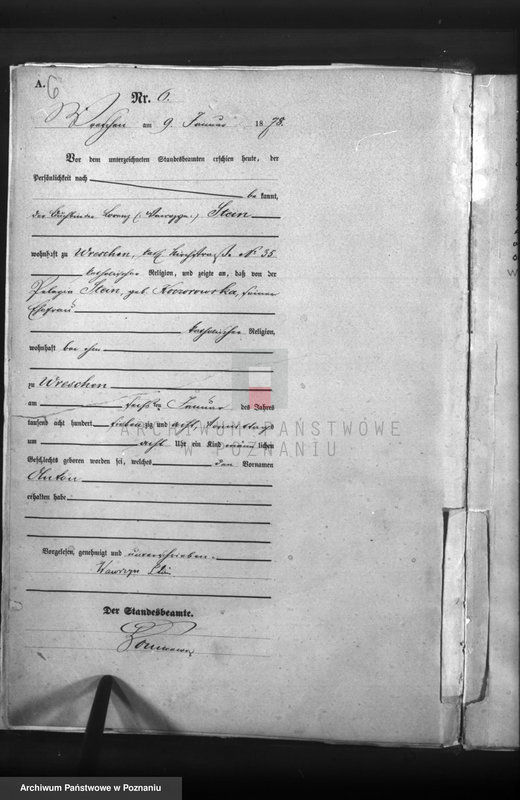 A. 6
Nr. 6.
Wreschen am 9. Januar 1878.
Vor dem unterzeichneten Standesbeamten erschien heute, der
Persönlichkeit nach
be kannt,
der Buchbinder Lorenz (Wawrzyn) Stein
wohnhaft zu Wreschen, Kirchstraße No 35
katholischer Religion, und zeigte an, daß von der
Pelagia Stein, geb. Koszorowska, seiner
Ehefrau
katholischer Religion,
wohnhaft bei ihm
zu Wreschen
am sechsten Januar des Jahres
tausend acht hundert siebenzig und acht, Vormittags
um acht Uhr ein Kind männlichen
Geschlechts geboren worden sei, welches den Vornamen
Anton
erhalten habe
Vorgelesen, genehmigt und unterschrieben.
Wawrzyn
Der Standesbeamte.
ARCHIWUM PAŃSTWOWE
W POZNANIU
Archiwum Państwowe w Poznaniu